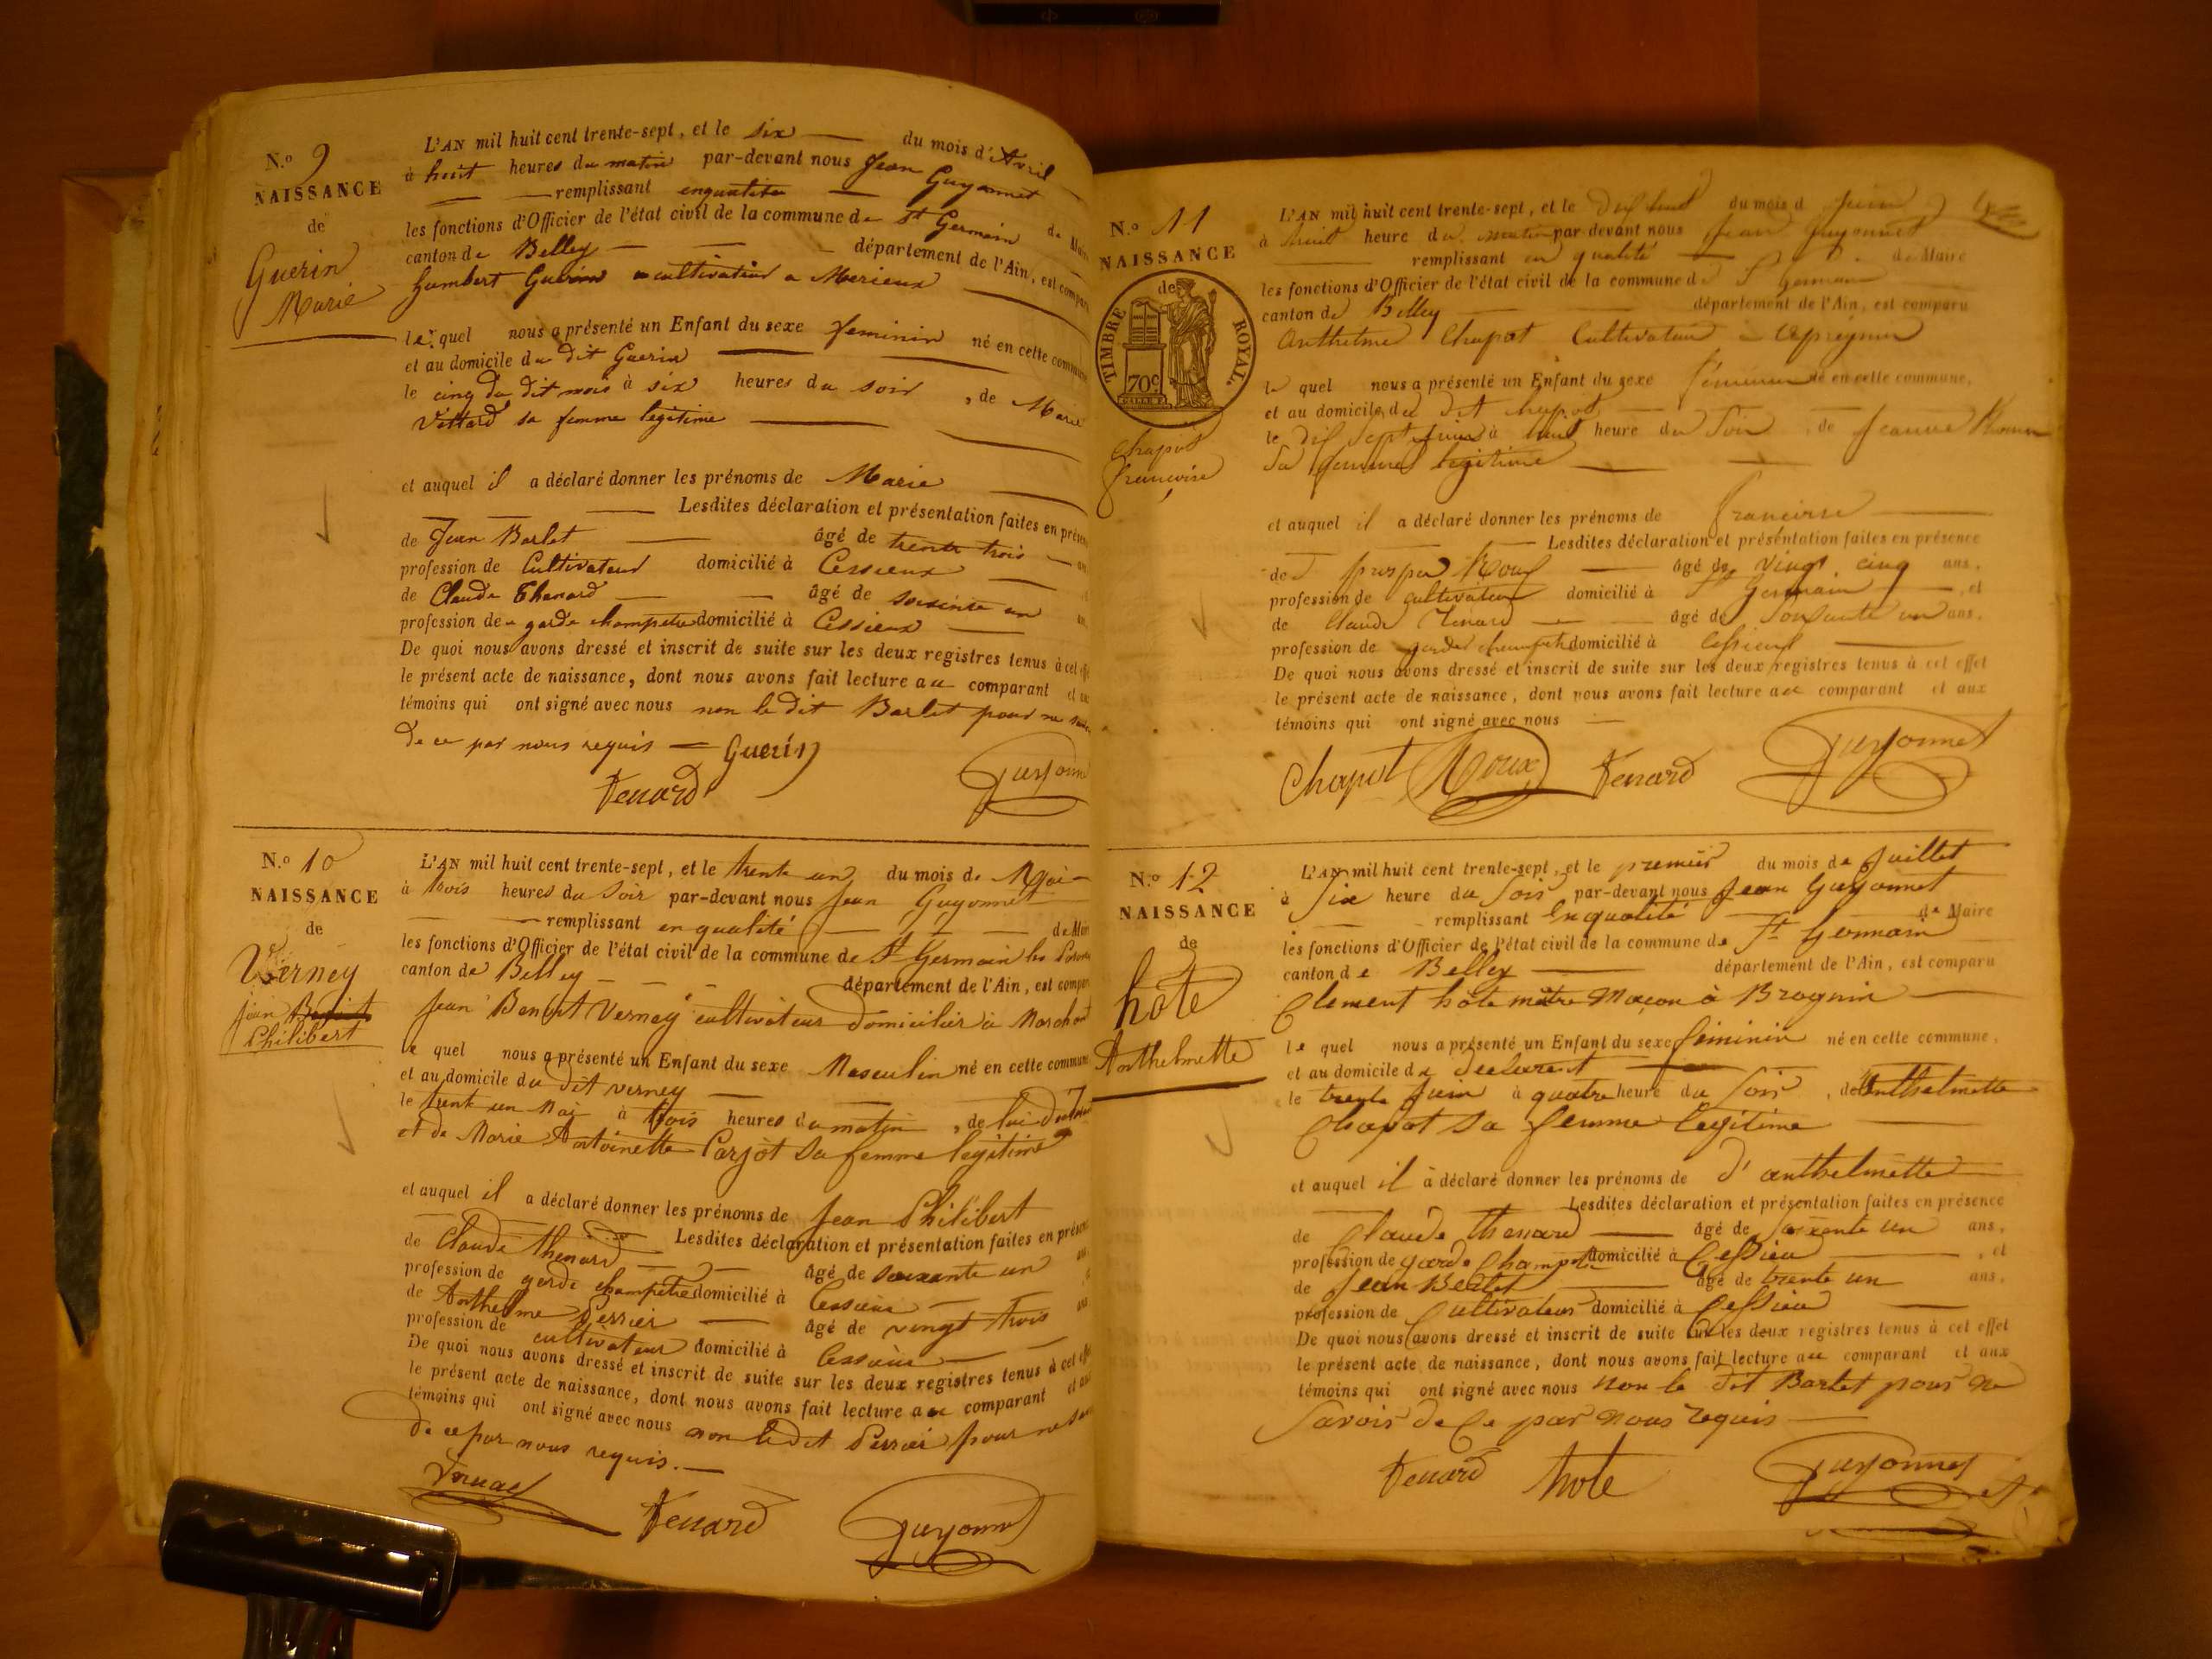 N.o 9
NAISSANCE
de
Guerin
Marie
L'AN mil huit cent trente-sept, et le six du mois d'Avril
à huit heures du matin par-devant nous Jean Guyonnet
remplissant enqualité de Maire
les fonctions d'Officier de l'état civil de la commune de St Germain
canton de Belley département de l'Ain, est comparu
humbert Guérin cultivateur a Merieux
le quel nous a présenté un Enfant du sexe feminin né en cette commune
et au domicile du dit Guerin
le cinq du dit mois à six heures du soir, de Marie
Vettard sa femme legitime
et auquel il a déclaré donner les prénoms de Marie
Lesdites déclaration et présentation faites en présence
de Jean Barlet âgé de trente trois ans
profession de Cultivateur domicilié à Cessieux
de Claude Thenard âgé de soixante un ans
profession de garde champetre domicilié à Cessieux
De quoi nous avons dressé et inscrit de suite sur les deux registres tenus à cet effet
le présent acte de naissance, dont nous avons fait lecture au comparant et aux
témoins qui ont signé avec nous non le dit Barlet pour ne savoir
de ce par nous requis Guérin
Tenard Guyonnet
N.o 10
NAISSANCE
de
Verney
jean Benoit
Philibert
L'AN mil huit cent trente-sept, et le trente un du mois de Mai
à trois heures du soir par-devant nous Jean Guyonnet
remplissant en qualité de Maire
les fonctions d'Officier de l'état civil de la commune de St Germain les
canton de Belley département de l'Ain, est comparu
Jean Benoit Verney cultivateur domicilier à
le quel nous a présenté un Enfant du sexe Masculin né en cette commune
et au domicile du dit verney
le trente un Mai à trois heures du matin, de lui
et de Marie Antoinette Carjot sa femme legitime
et auquel il a déclaré donner les prénoms de Jean Philibert
Lesdites déclaration et présentation faites en présence
de Claude thenard âgé de soixante un ans
profession de garde champetre domicilié à Cessieux
de Anthelme Perrier âgé de vingt trois ans
profession de cultivateur domicilié à Cessieux
De quoi nous avons dressé et inscrit de suite sur les deux registres tenus à cet effet
le présent acte de naissance, dont nous avons fait lecture au comparant et aux
témoins qui ont signé avec nous non le dit Perrier pour ne
de ce par nous requis.
Tenard Guyonnet
N.o 11
NAISSANCE
de
TIMBRE ROYAL.
70c
Chapot
francoise
L'AN mil huit cent trente-sept, et le dix huit du mois d juin
à huit heure du matin par-devant nous Jean Guyonnet
remplissant en qualité de Maire
les fonctions d'Officier de l'état civil de la commune de St Germain
canton de Belley département de l'Ain, est comparu
Anthelme Chapot Cultivateur
le quel nous a présenté un Enfant du sexe féminin né en cette commune,
et au domicile du dit chapot
le dix sept juin à huit heure du Soir de Jeanne
Sa femme legitime
et auquel il a déclaré donner les prénoms de francoise
Lesdites déclaration et présentation faites en présence
de prosper Roux âgé de vingt cinq ans,
profession de cultivateur domicilié à St Germain, et
de Claude Tenard âgé de Soixante un ans,
profession de garde champetre domicilié à Cessieux
De quoi nous avons dressé et inscrit de suite sur les deux registres tenus à cet effet
le présent acte de naissance, dont nous avons fait lecture au comparant et aux
témoins qui ont signé avec nous
Chapot Roux Tenard Guyonnet
N.o 12
NAISSANCE
de
hote
Anthelmette
L'AN mil huit cent trente-sept, et le premier du mois de Juillet
à Six heure du Soir par-devant nous Jean Guyonnet
remplissant En qualité de Maire
les fonctions d'Officier de l'état civil de la commune de St Germain
canton de Belley département de l'Ain, est comparu
Clement hôte mètre Maçon à Brognin
le quel nous a présenté un Enfant du sexe féminin né en cette commune,
et au domicile du declarent
le trente Juin à quatre heure du Soir, de Anthelmette
Chapot Sa femme legitime
et auquel il à déclaré donner les prénoms de d'anthelmette
Lesdites déclaration et présentation faites en présence
de Claude thenard âgé de Soixente un ans,
profession de garde Champetre domicilié à Cessieu, et
de Jean Berlet âgé de trente un ans,
profession de Cultivateur domicilié à Cessieu
De quoi nous avons dressé et inscrit de suite sur les deux registres tenus à cet effet
le présent acte de naissance, dont nous avons fait lecture au comparant et aux
témoins qui ont signé avec nous non le dit Barlet pour ne
Savoir de Ce par nous requis
Tenard hote Guyonnet